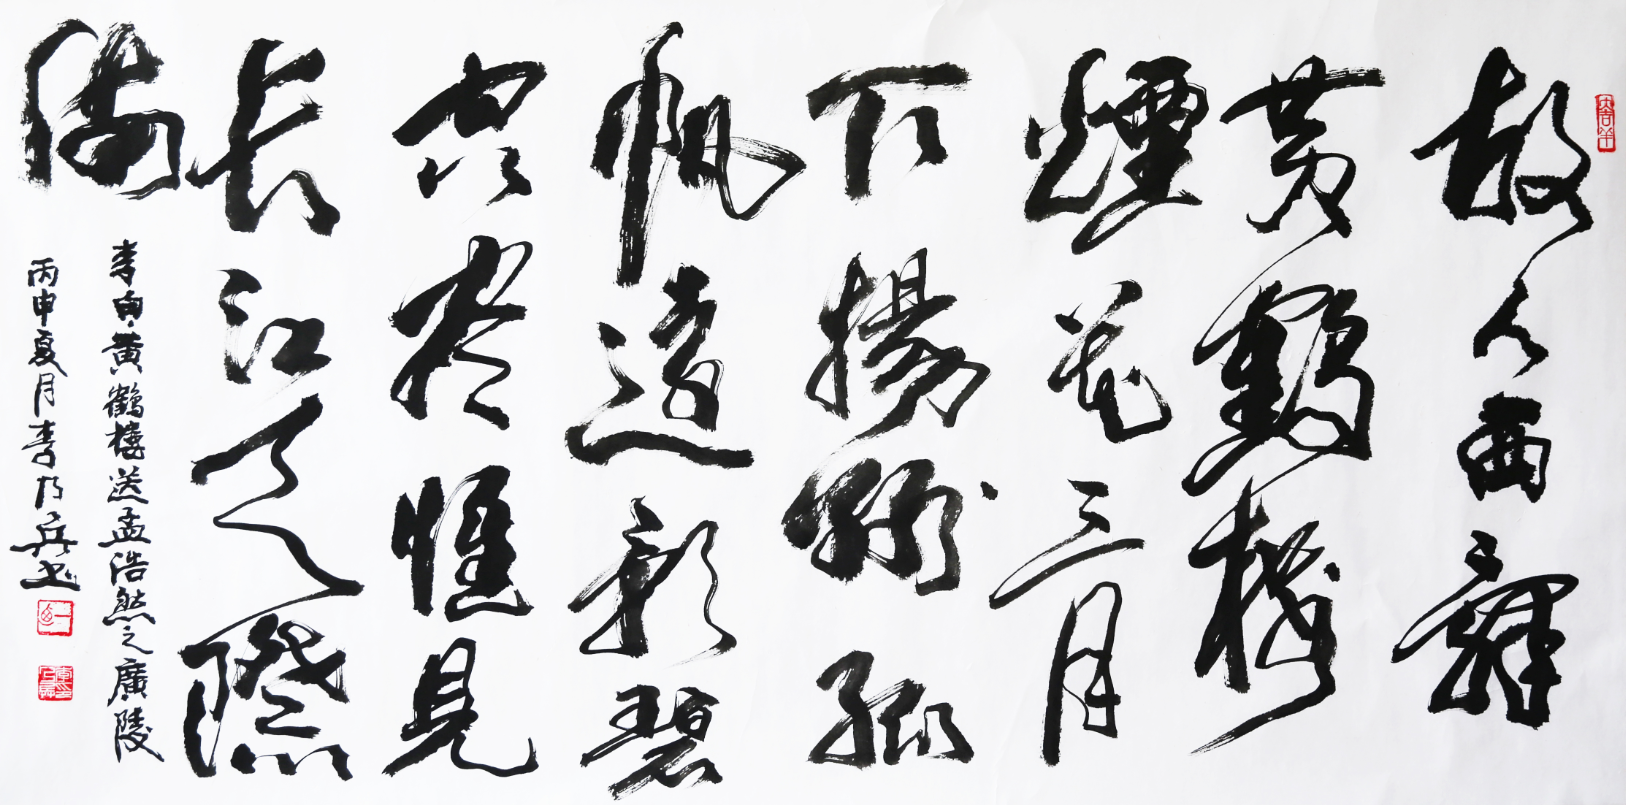 故人西辭
黄鶴樓
煙花三月
下揚州孤
帆遠影碧
空盡惟見
長江天際
流
李白黄鶴樓送孟浩然之廣陵
丙申夏月李乃兵书